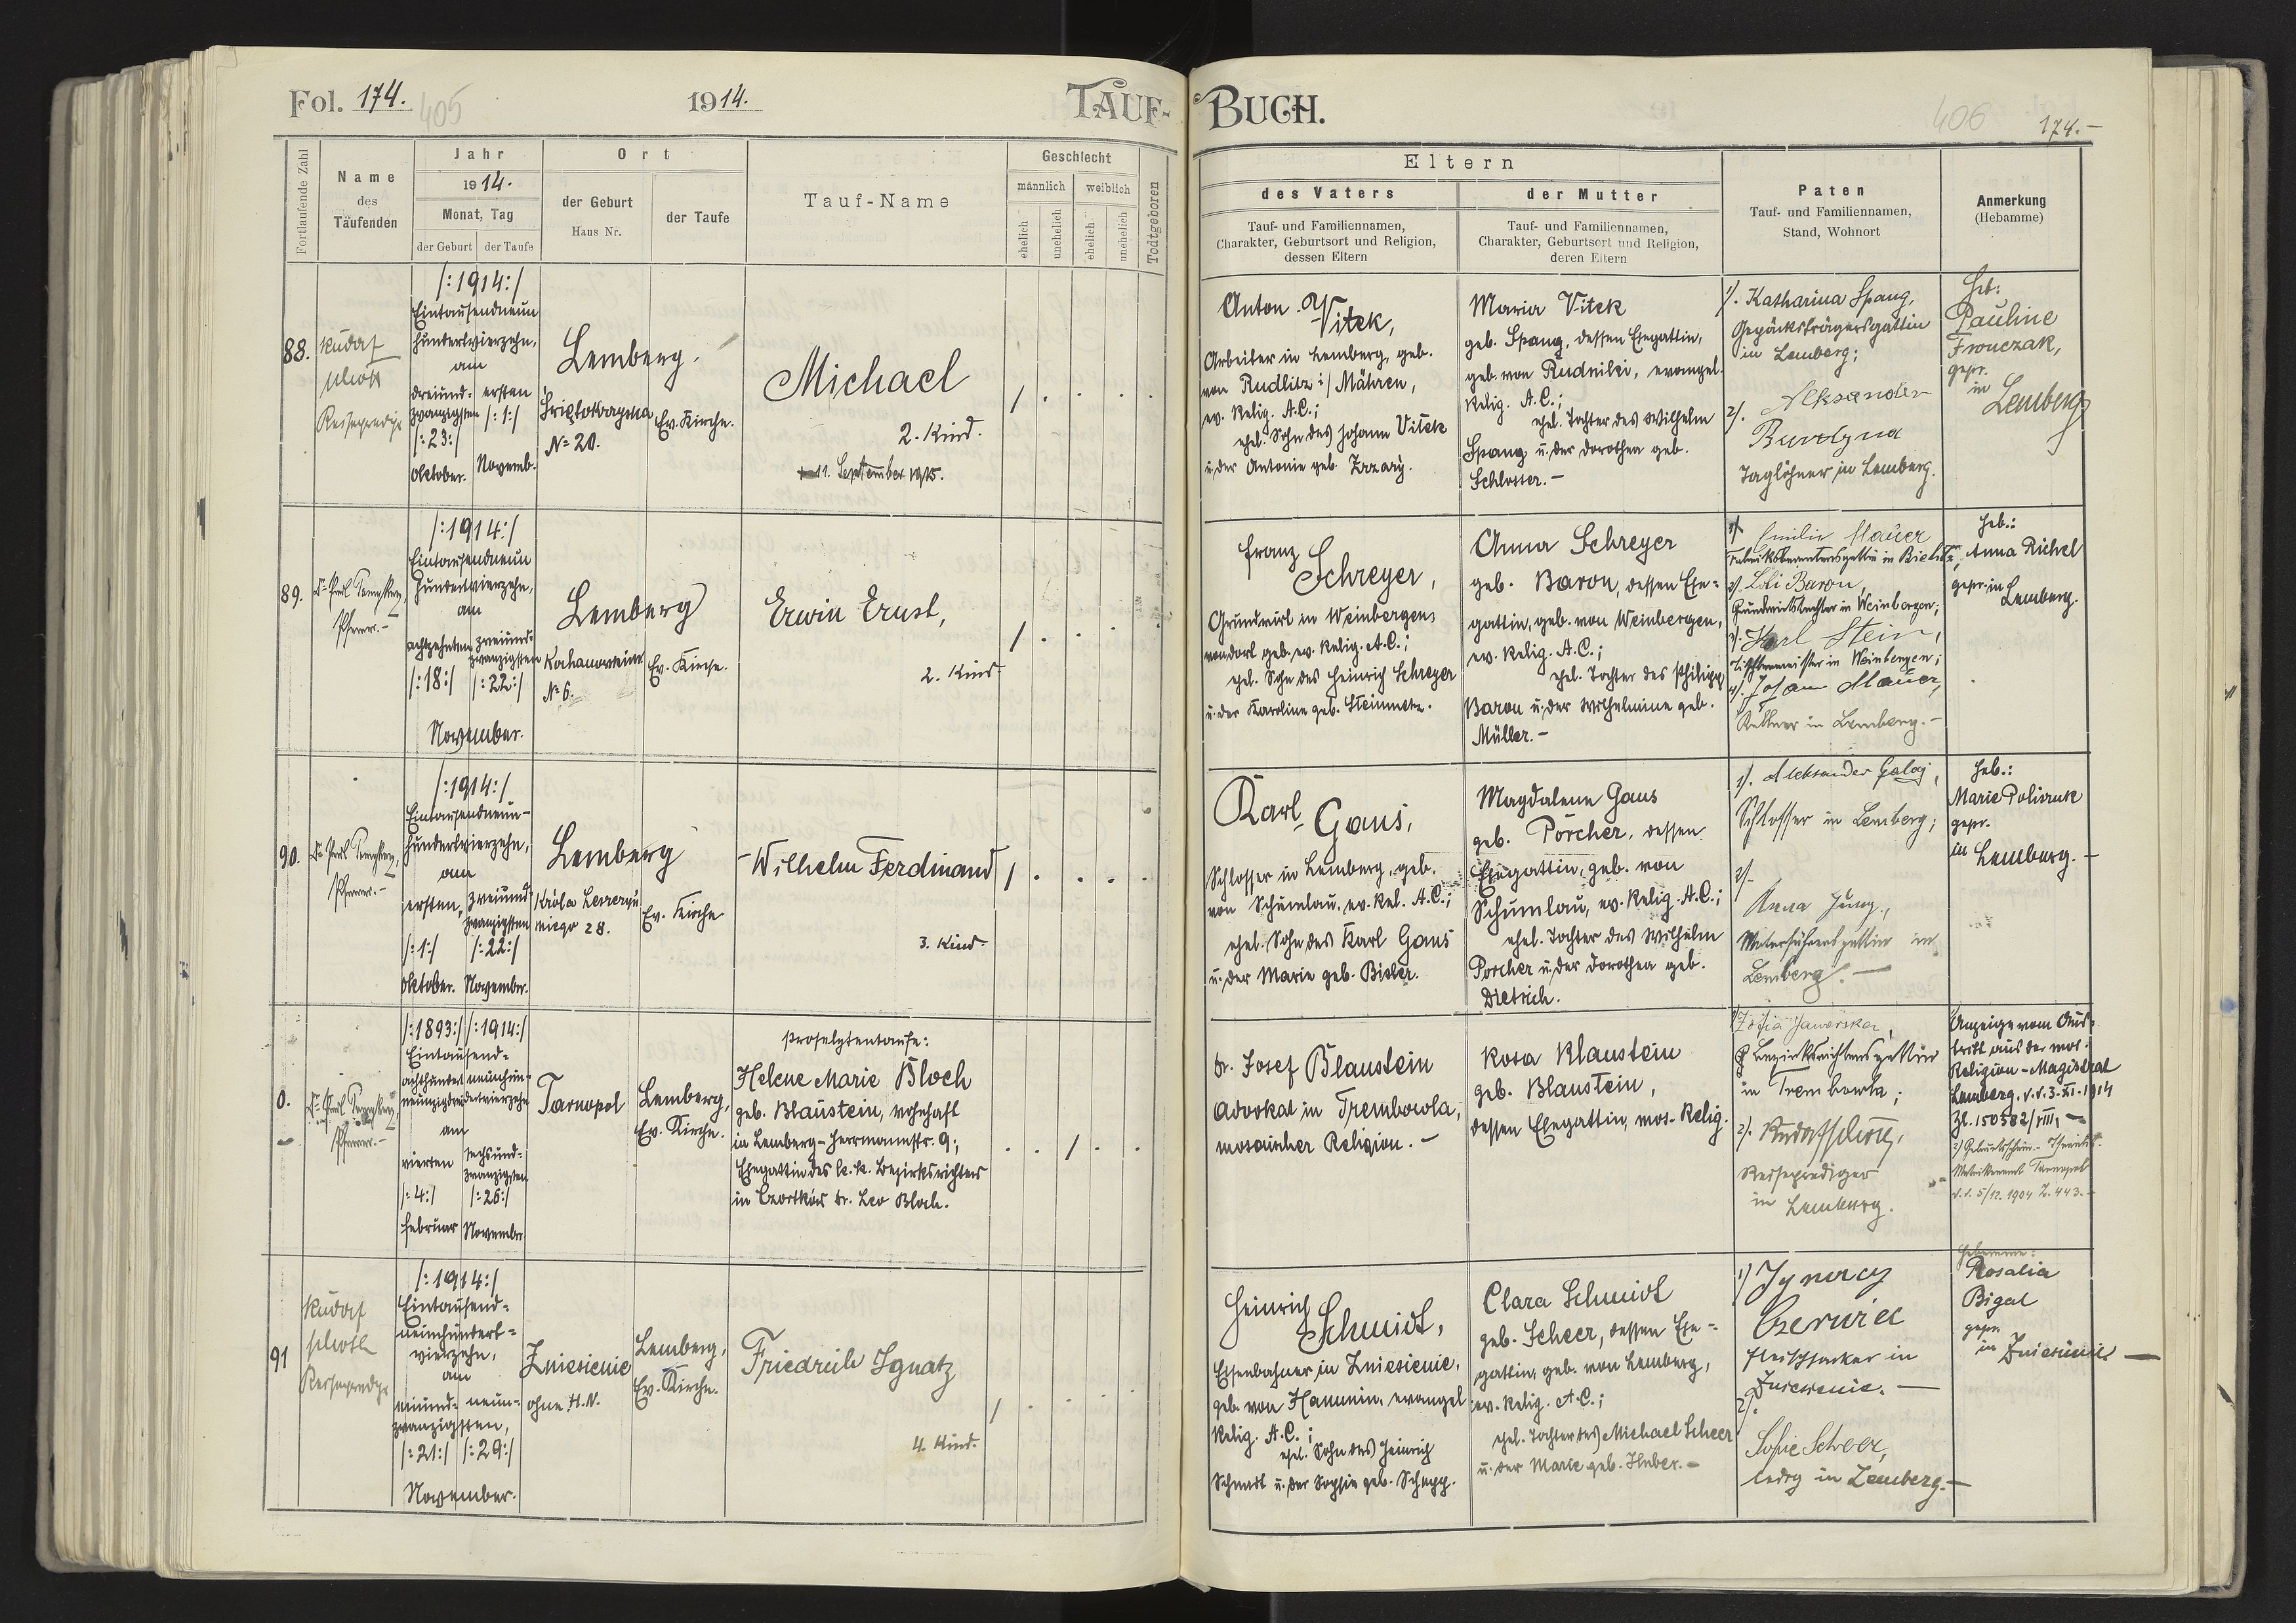 Fol. 174.
405
1914.
TAUF-
BUCH.
406
174.-
Fortlaufende Zahl
Name
des
Taufenden
Jahr
1914.
Monat, Tag
der Geburt
der Taufe
Ort
der Geburt
Haus Nr.
der Taufe
Tauf-Name
Geschlecht
männlich
weiblich
ehelich
unehelich
ehelich
unehelich
Todtgeboren
Eltern
des Vaters
Tauf- und Familiennamen,
Charakter, Geburtsort und Religion,
dessen Eltern
der Mutter
Tauf- und Familiennamen,
Charakter, Geburtsort und Religion,
deren Eltern
Paten
Tauf- und Familiennamen,
Stand, Wohnort
Anmerkung
(Hebamme)
88.
Rudolf
/:1914:/
Eintausendneun
hundertvierzehn,
am
dreiund-
zwanzigsten
/:23:/
Oktober.
ersten
/:1:/
Novemb.
Lemberg.
N= 20.
Ev. Kirche.
Michael
2. Kind.
11. September 1915.
Anton
Vitek,
Arbeiter in Lemberg, geb.
von Rudlitz i/ Mähren,
ev. Relig. A.C.;
ehel. Sohn des Johann Vitek
u. der Antonie geb.
Maria Vitek
geb. Spang, dessen Ehegattin,
geb. von Rudniki, evangel.
Relig. A.C.;
ehel. Tochter des Wilhelm
Spang u. der Dorothea geb.
Schlosser.-
1/. Katharina Spang,
Gepäcksträgersgattin
in Lemberg;
2/. Aleksander
Taglöhner in Lemberg.
Heb:
Pauline
Fronczak,
gepr.
in
Lemberg
89.
Pfarrer.-
/:1914:/
Eintausendneun
hundertvierzehn,
am
achtzehnten
/:18:/
zweiund-
zwanzigsten
/:22:/
November.
Lemberg
N= 6.
Ev. Kirche.
Erwin Ernst,
2. Kind.
Franz
Schreyer,
Grundwirt in Weinbergen,
von dort geb. ev. Relig. A.C.;
ehel. Sohn des Heinrich Schreyer
u. der Karoline geb. Steinmetz.
Anna Schreyer
geb. Baron, dessen Ehe-
gattin, geb. von Weinbergen,
ev. Relig. A.C.;
ehel. Tochter des Philipp
Baron u. der Wilhelmine geb.
Müller.-
1/. Emilie Mauer
2/. Baron,
Grundwirtstochter in Weinbergen;
3/. Karl Stein,
Tischlermeister in Weinbergen;
4/. Johann Mauer,
Kellner in Lemberg.-
Heb.:
Anna Richel
gepr. in
Lemberg.
90.
Pfarrer.-
/:1914:/
Eintausendneun-
hundertvierzehn,
am
ersten,
/:1:/
Oktober.
zweiund
zwanzigsten
/:22:/
November.
Lemberg
28.
Ev. Kirche
Wilhelm Ferdinand
3. Kind.
Karl
Gans,
Schlosser in Lemberg, geb.
von Schumlau, ev. Rel. A.C.;
ehel. Sohn des Karl Gans
u. der Marie geb. Bisler.
Magdalena Gans
geb. Porcher, dessen
Ehegattin, geb. von
Schumlau, ev. Relig. A.C.;
ehel. Tochter des Wilhelm
Porcher u. der Dorothea geb.
Dietrich.
1/. Aleksander
Schlosser in Lemberg;
2/-
Anna Jung,
in
Lemberg.-
Heb.:
Marie
gepr.
in Lemberg.-
0.
Pfarrer.-
/:1893:/
/:1914:/
Eintausend-
am
vierten
/:4:/
Februar
sechsund-
zwanzigsten
/:26:/
November
Tarnopol
Lemberg,
Ev. Kirche.
Proselytentaufe:
Helene Marie Bloch
geb. Blaustein, wohnhaft
in Lemberg-Herrmannstr. 9;
Ehegattin des k.k. Bezirksrichters
in Czortków Dr. Leo Bloch.
Dr. Josef Blaustein
Advokat in Trembowla,
mosaischer Religion.-
Rosa Blaustein
geb. Blaustein,
dessen Ehegattin, mos. Relig.
1/ Zofia Jaworska,
Bezirksrichtersgattin
in Trembowla;
2/.
Reiseprediger
in Lemberg.
Anzeige vom Aus-
tritt aus der mos.
Religion-Magistrat
Lemberg, v.d. 3.XI.1914
Zl. 150582/VIII,
2/ Geburtsschein-
Tarnopol
v.d. 5/12.1904 Z. 443.-
91
Rudolf
/:1914:/
Eintausend-
neunhundert-
vierzehn,
am
einund-
neun-
zwanzigsten,
/:21:/
/:29:/
November.
Zniesienie
ohne H.N.
Lemberg,
Ev. Kirche.
Friedrich Ignatz
4. Kind.
Heinrich
Schmidt,
Eisenbahner in Zniesienie,
geb. von Hanunin, evangel
Relig. A.C.;
ehel. Sohn des Heinrich
Schmidt u. der Sophie geb. Schupp.
Clara Schmidt
geb. Scheer, dessen Ehe-
gattin, geb. von Lemberg,
ev. Relig. A.C.;
ehel. Tochter des Michael Scheer
u. der Marie geb. Huber.-
1/ Ignacy
in
Zniesienie.-
2/.
Sofie Scheer,
ledig in Lemberg.-
Hebamme:
Rosalia
Bigal
gepr.
in Zniesienie.-